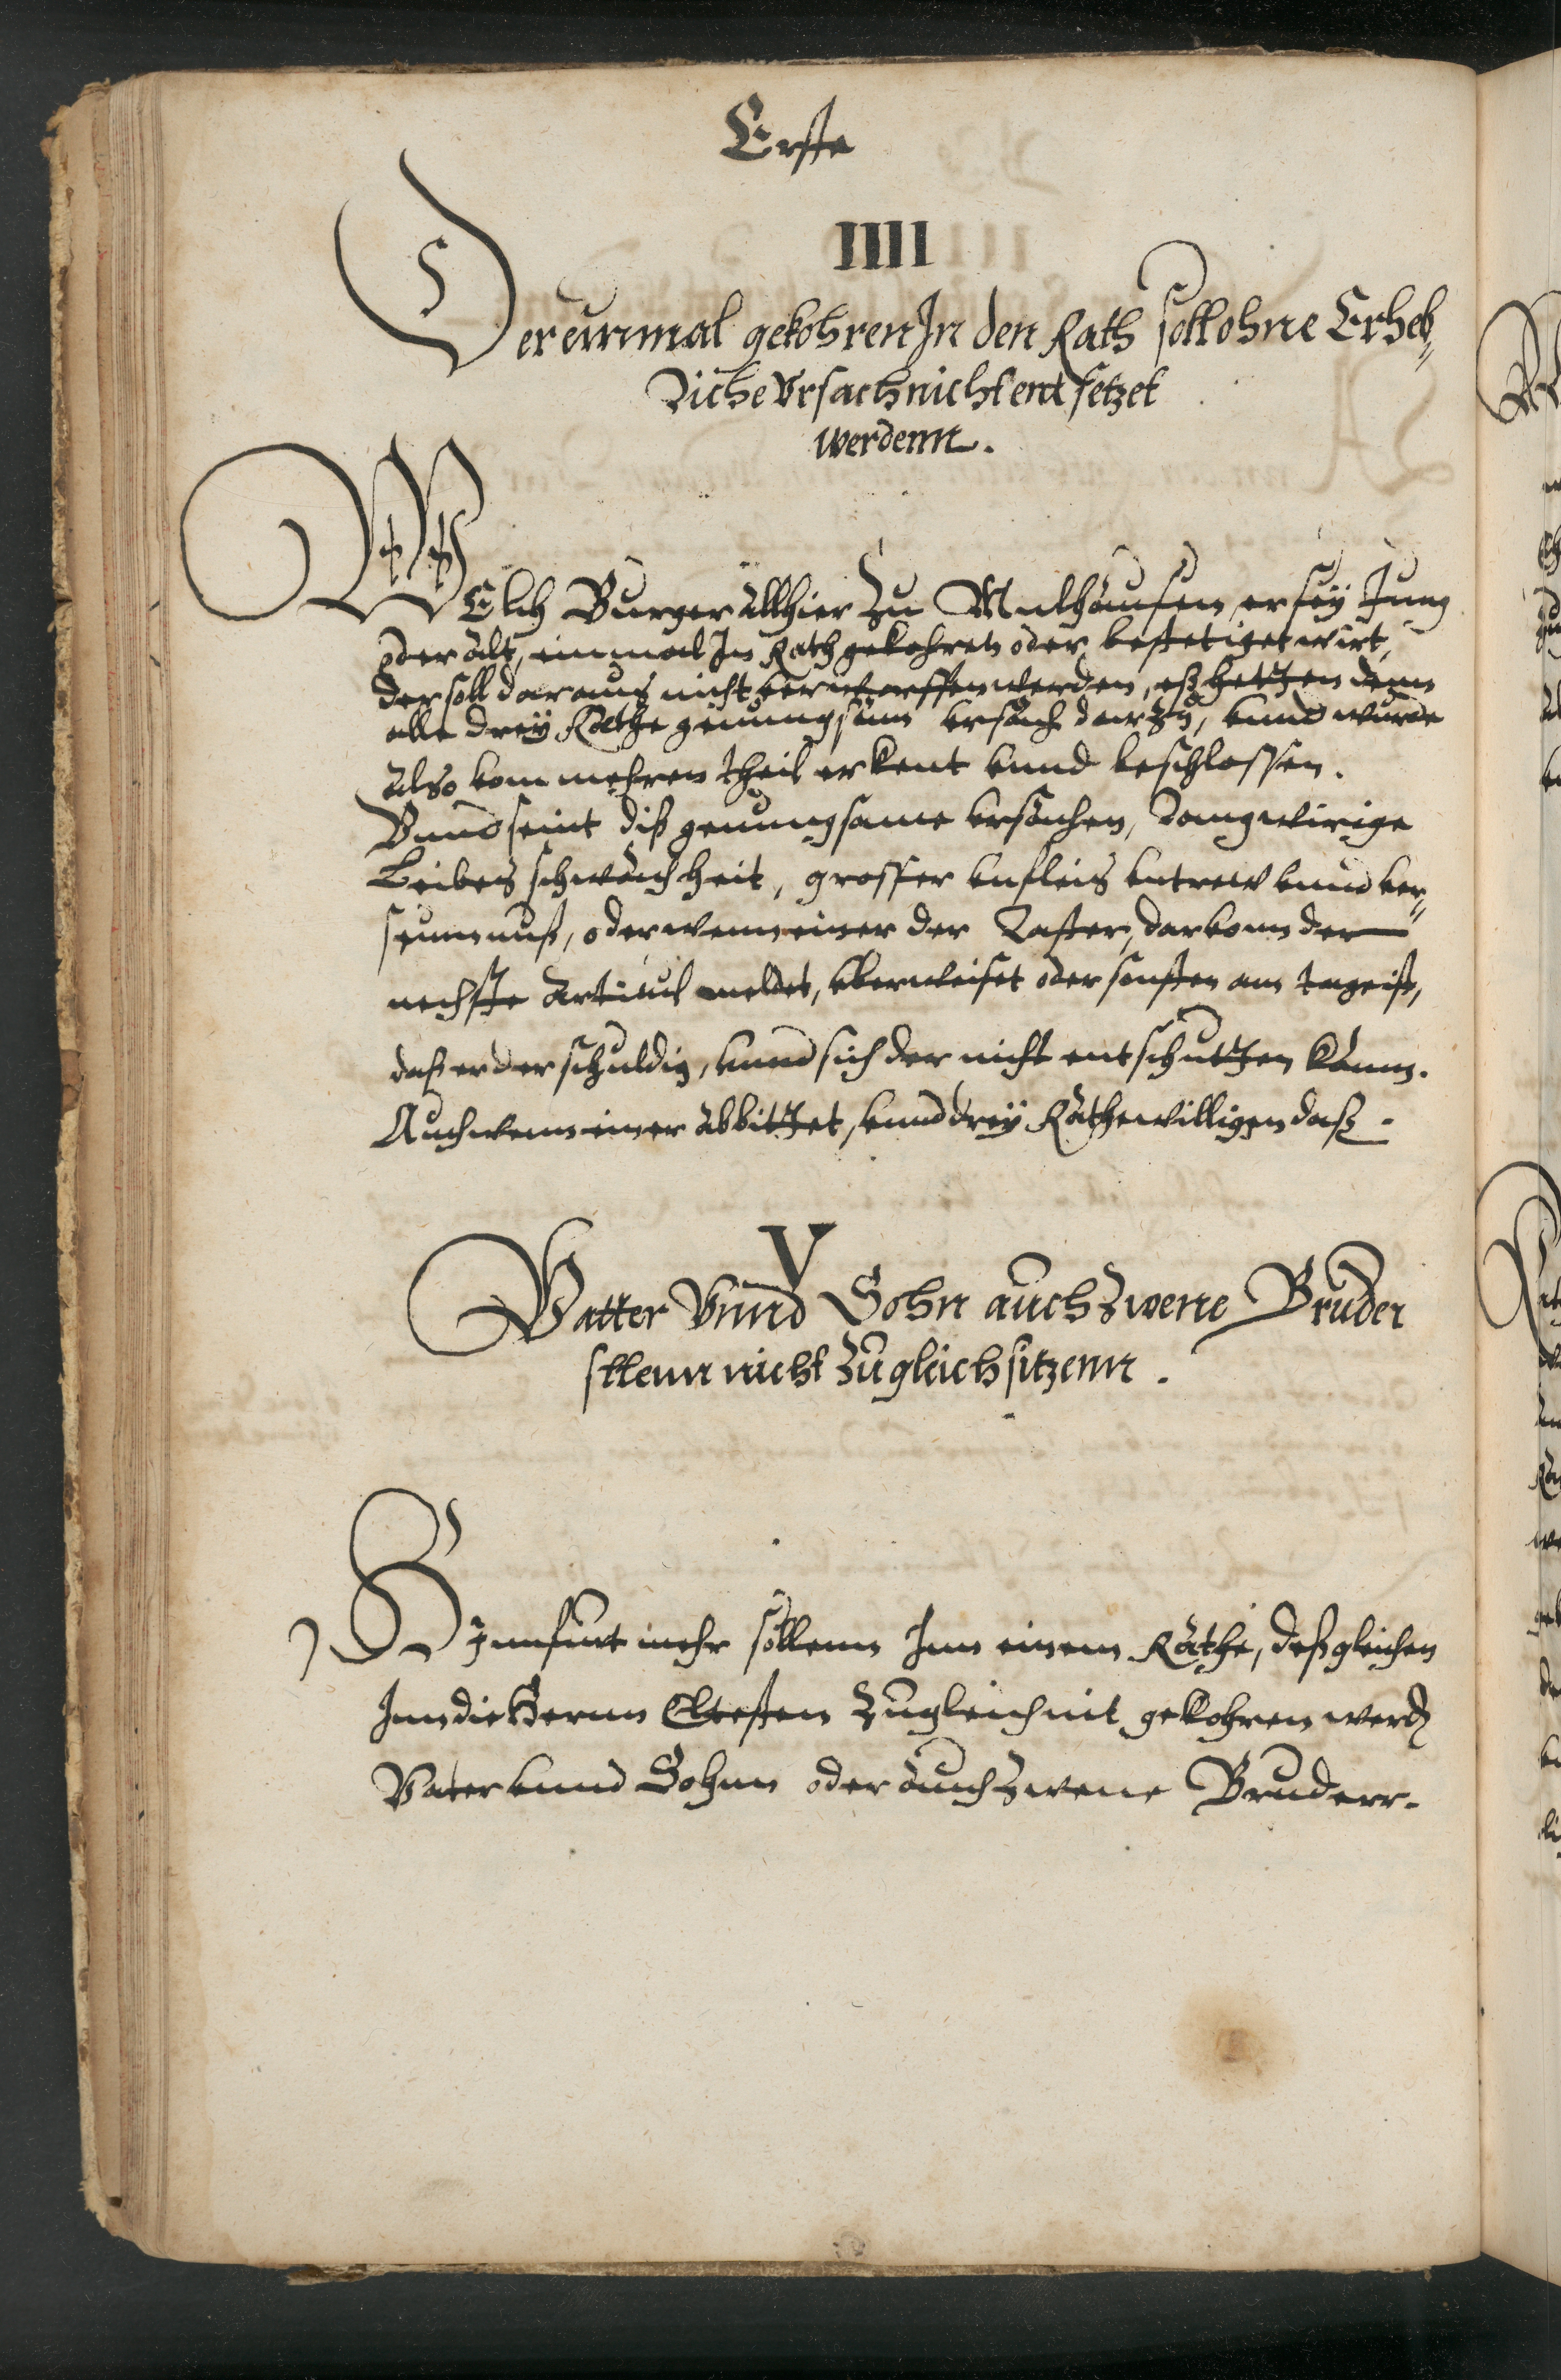 Erste
IIII
Der einmal gekohren In den Rath soll ohne Erheb„
Liche Vrsach nicht entsetzet
werdenn.
WElch Burger allhier Zu Mulhausen, er seÿ Jung
oder alt, einmal In Rath gekohren oder bestetiget wirt,
der soll daraus nicht verworffen werden, eß hetten denn
alle dreÿ Räthe genungsam vrsach darzu, vnnd wurde
also vom mehren theil erkent vnnd beschlossen.
Vnnd seint diß genungsame vrsachen, Langwirige
Leibes schwachheit, grosser vnfleis vntrew vnnd ver„
seumnuß, oder wenn einer der Laster, darvonn der
nechste Articul meldet, vberweiset oder sonsten am tage ist,
daß er der schuldig, vnnd sich der nicht entschutzen kann.
Auch wenn einer abbittet, vnnd dreÿ Räthe willigen daß.
V
Vatter Vnnd Sohn auch Zwene Bruder
sllenn nicht Zugleich sitzenn.
Hinnfurt mehr sollenn Inn einem Rathe, deßgleichen
Inn die Herrnn Eltesten Zugleich nit gekohren werd
Vater vnnd Sohnn oder auch Zwene Bruderr.